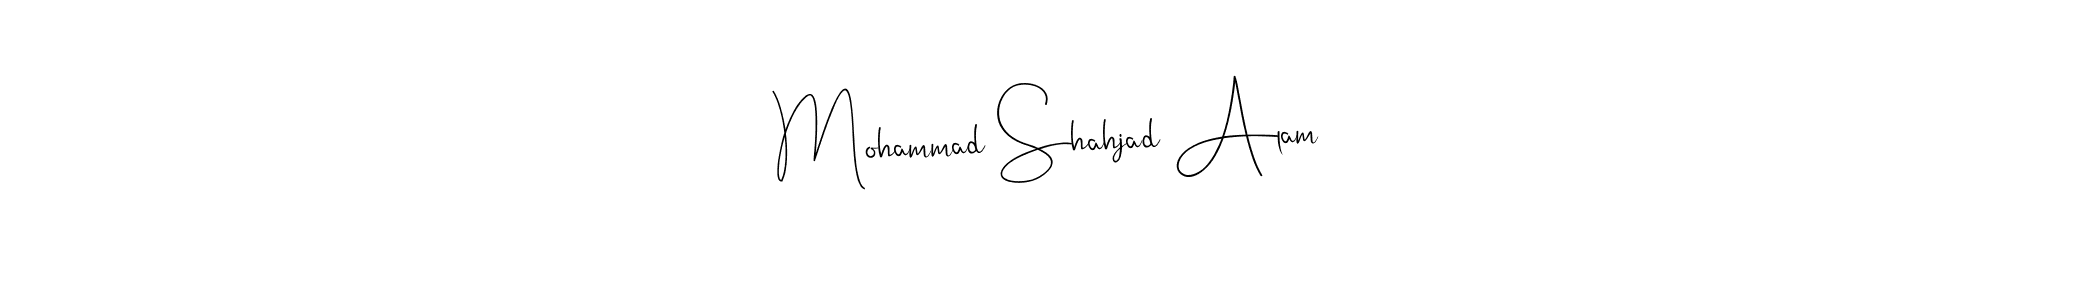 Mohammad Shahjad Alam